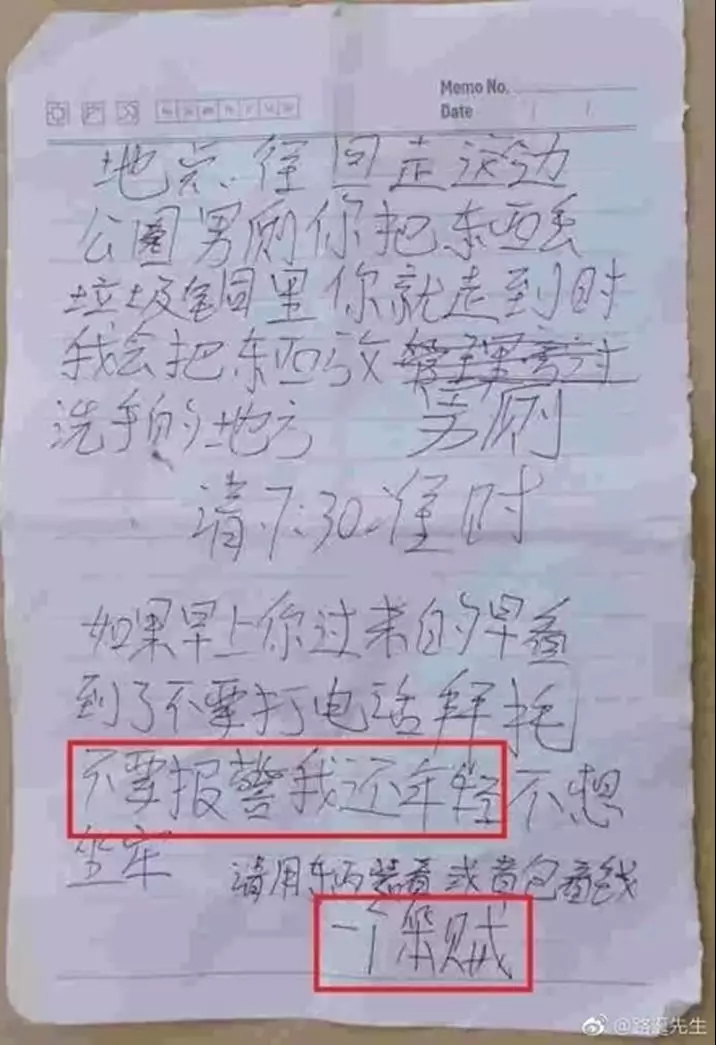 Memo No.
Date
地点.往回走这边
公园男厕你把东西丢
垃圾铜里你就走到时
我会把东西放
洗手的地方 男厕
请7:30准时
如果早上你过来的早看
到了不要打电话拜托
不要报警我还年轻不想
坐牢 请用东西装着或者包着钱
一个笨贼
@路遥先生